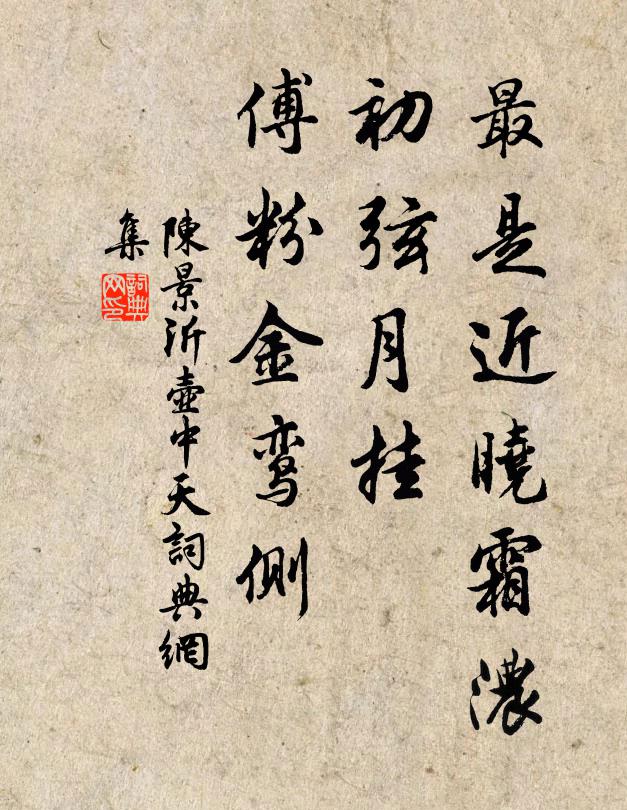 最是近曉霜濃
初弦月挂
傅粉金鸾側
陳景沂壺中天詞典網
集
詞典
网印